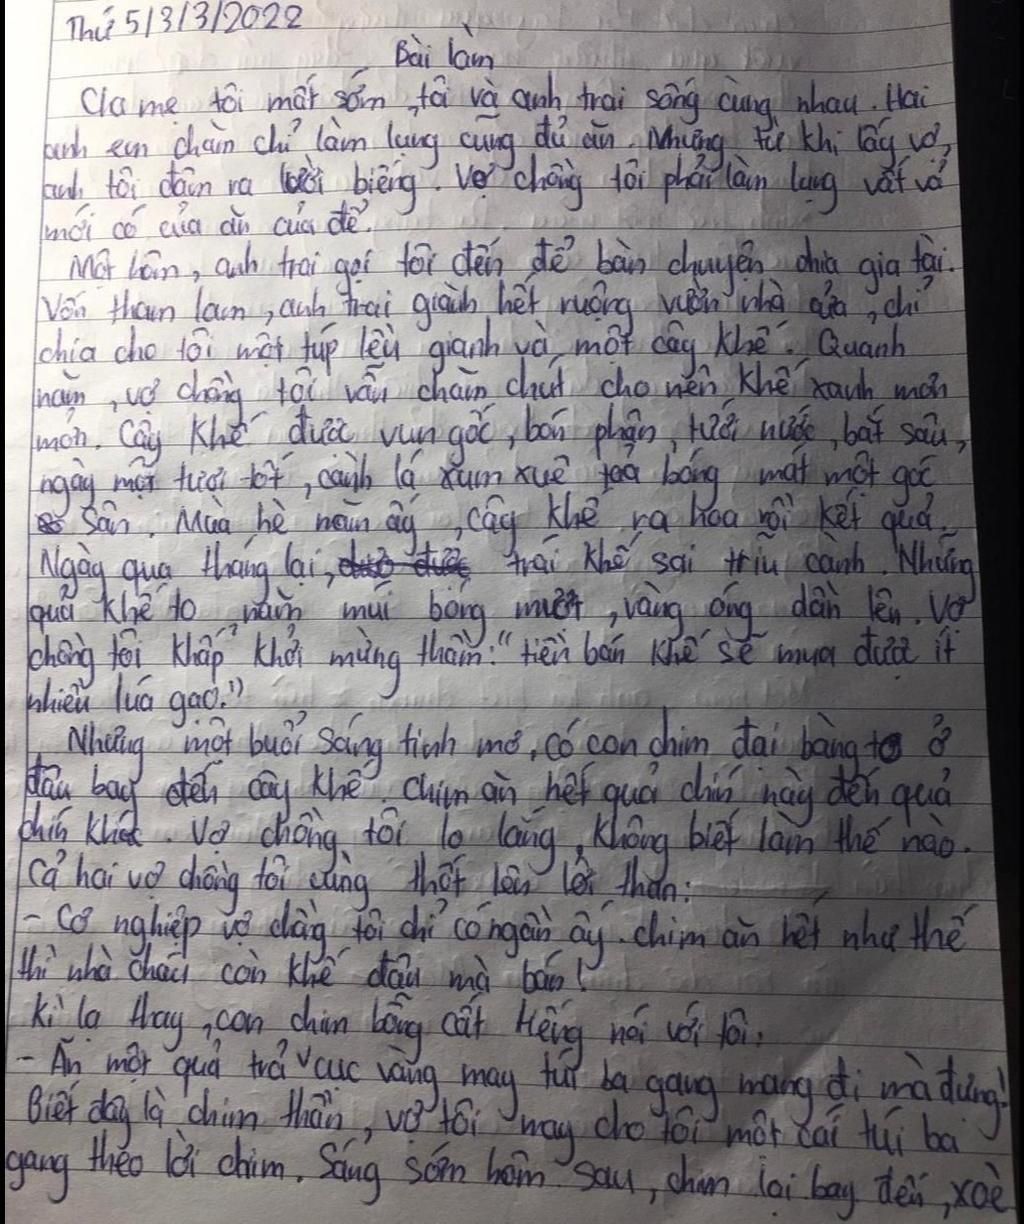 Thứ 5/3/3/2022
Bài làm
Cha mẹ tôi mất sớm, tôi và anh trai sống cùng nhau. Hai
anh em chăm chỉ làm lụng cũng đủ ăn. Nhưng từ khi lấy vợ,
anh tôi đâm ra lười biếng. Vợ chồng tôi phải làm lụng vất vả
mới có của ăn của để.
Một hôm, anh trai gọi tôi đến để bàn chuyện chia gia tài.
Vốn tham lam, anh trai giành hết ruộng vườn nhà cửa, chỉ
chia cho tôi một túp lều gianh và một cây khế. Quanh
năm, vợ chồng tôi vẫn chăm chút cho nên khế xanh mơn
mởn. Cây khế được vun gốc, bón phân, tưới nước, bắt sâu,
ngày một tươi tốt, cành lá xum xuê toả bóng mát một góc
sân. Mùa hè năm ấy, cây khế ra hoa rồi kết quả.
Ngày qua tháng lại, trái khế sai trĩu cành. Những
quả khế to năm múi bóng mượt, vàng óng dần lên. Vợ
chồng tôi khấp khởi mừng thầm: "tiền bán khế sẽ mua được ít
nhiều lúa gạo."
Nhưng một buổi sáng tinh mơ, có con chim đại bàng to ở
đâu bay đến cây khế. Chim ăn hết quả chín này đến quả
chín khác. Vợ chồng tôi lo lắng, không biết làm thế nào.
Cả hai vợ chồng tôi cùng thốt lên lời than:
- Cơ nghiệp vợ chồng tôi chỉ có ngần ấy. chim ăn hết như thế
thì nhà cháu còn khế đâu mà bán!
Kì lạ thay, con chim bỗng cất tiếng nói với tôi:
- Ăn một quả trả cục vàng may túi ba gang mang đi mà đựng!
Biết đây là chim thần, vợ tôi may cho tôi một cái túi ba
gang theo lời chim. Sáng sớm hôm sau, chim lại bay đến, xoè